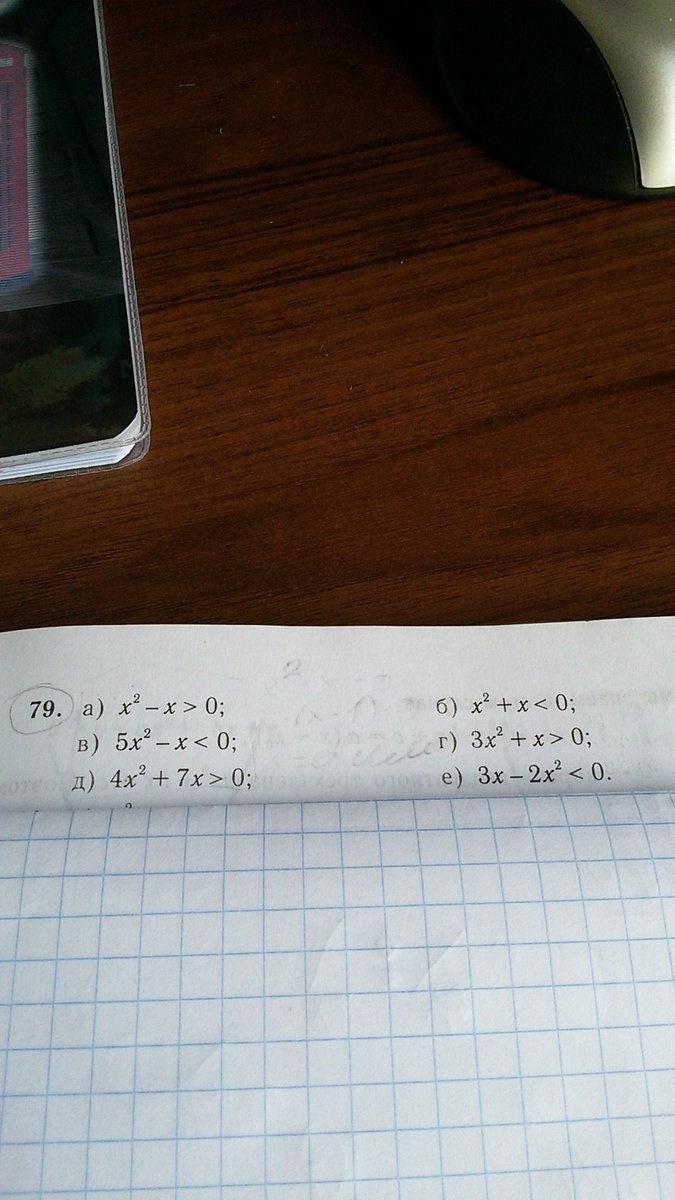 79. а) x² – x > 0; б) x² + x < 0;
в) 5x² – x < 0; г) 3x² + x > 0;
д) 4x² + 7x > 0; е) 3x – 2x² < 0.